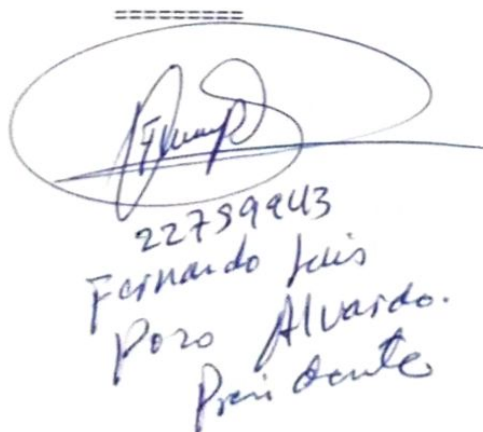 22759943
Fernando Luis
Pozo Alvardo.
Presidente